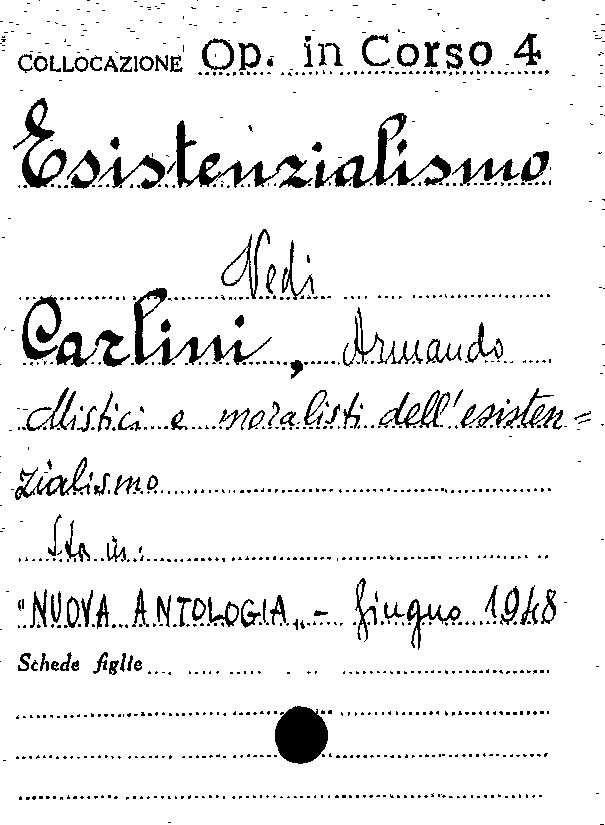 COLLOCAZIONE Op. in Corso 4
Esistenzialismo
Vedi
Carlini, Armando
Mistici e moralisti dell'esisten=
zialismo
Sta in:
"NUOVA ANTOLOGIA„ - Giugno 1948
Schede figlie